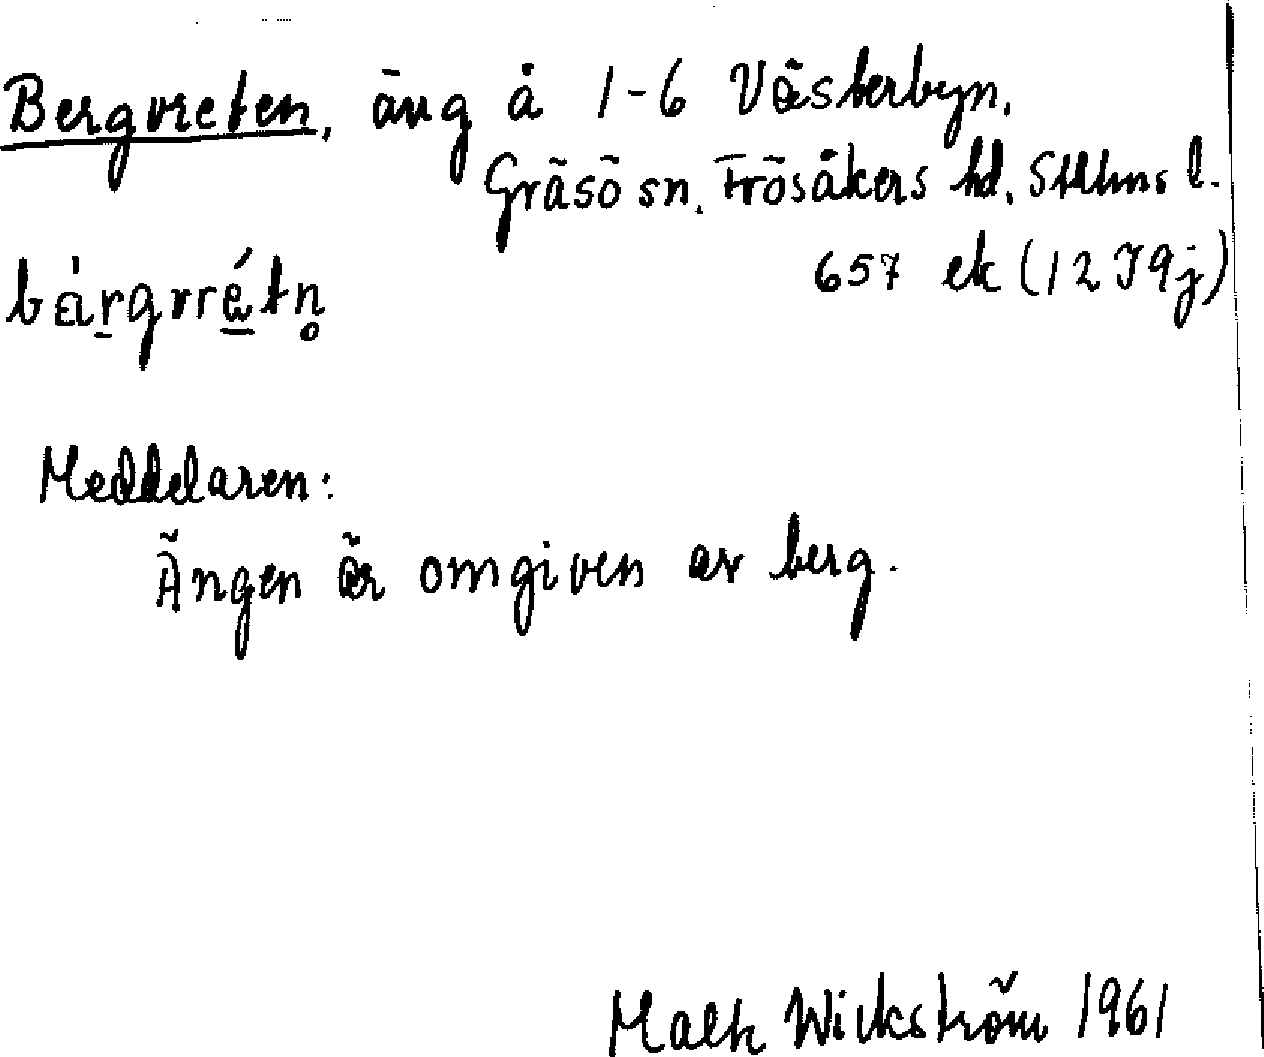 Bergvreten, äng å 1-6 Västerbyn.
Gräsö sn. Frösåkers hd. Sthlms l.
657 ek (12 I 9j)
Meddelaren:
Ängen är omgiven av berg.
Wickström 1961